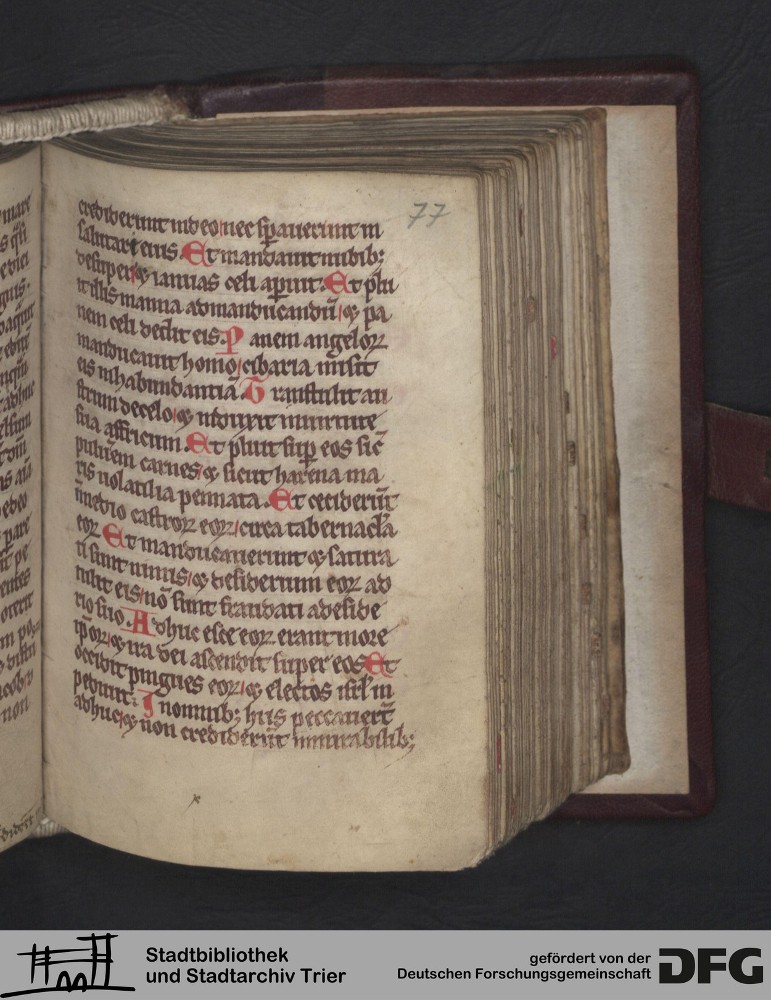 77
crediderunt in deo nec sperauerunt in
salutari eius. Et mandauit nubib;
desuper & ianuas celi aperuit. Et plu
it illis manna ad manducandū & pa
nem celi dedit eis. Panem angeloꝝ
manducauit homo cibaria misit
eis in habundantiā. Transtulit au
strum de celo & induxit in uirtute
sua affricum. Et pluit suꝑ eos sic̄
puluerem carnes & sicut harena ma
ris uolatilia pennata. Et cecider̄ut
ī medio castroꝝ eoꝝ circa tabernac̄la
eoꝝ Et manducauerunt & satura
ti sunt nimis & desiderium eoꝝ ad
tulit eis nō sunt fraudati a deside
rio suo. Adhuc esce eoꝝ erant in ore
ip̄oꝝ & ira dei ascendit super eos Et
occidit pingues eoꝝ & electos isrl̄ in
pediuit. In omnib; hiis peccauer̄t
adhuc & non crediderūt in mirabilib;
Stadtbibliothek
und Stadtarchiv Trier
gefördert von der
Deutschen Forschungsgemeinschaft
DFG